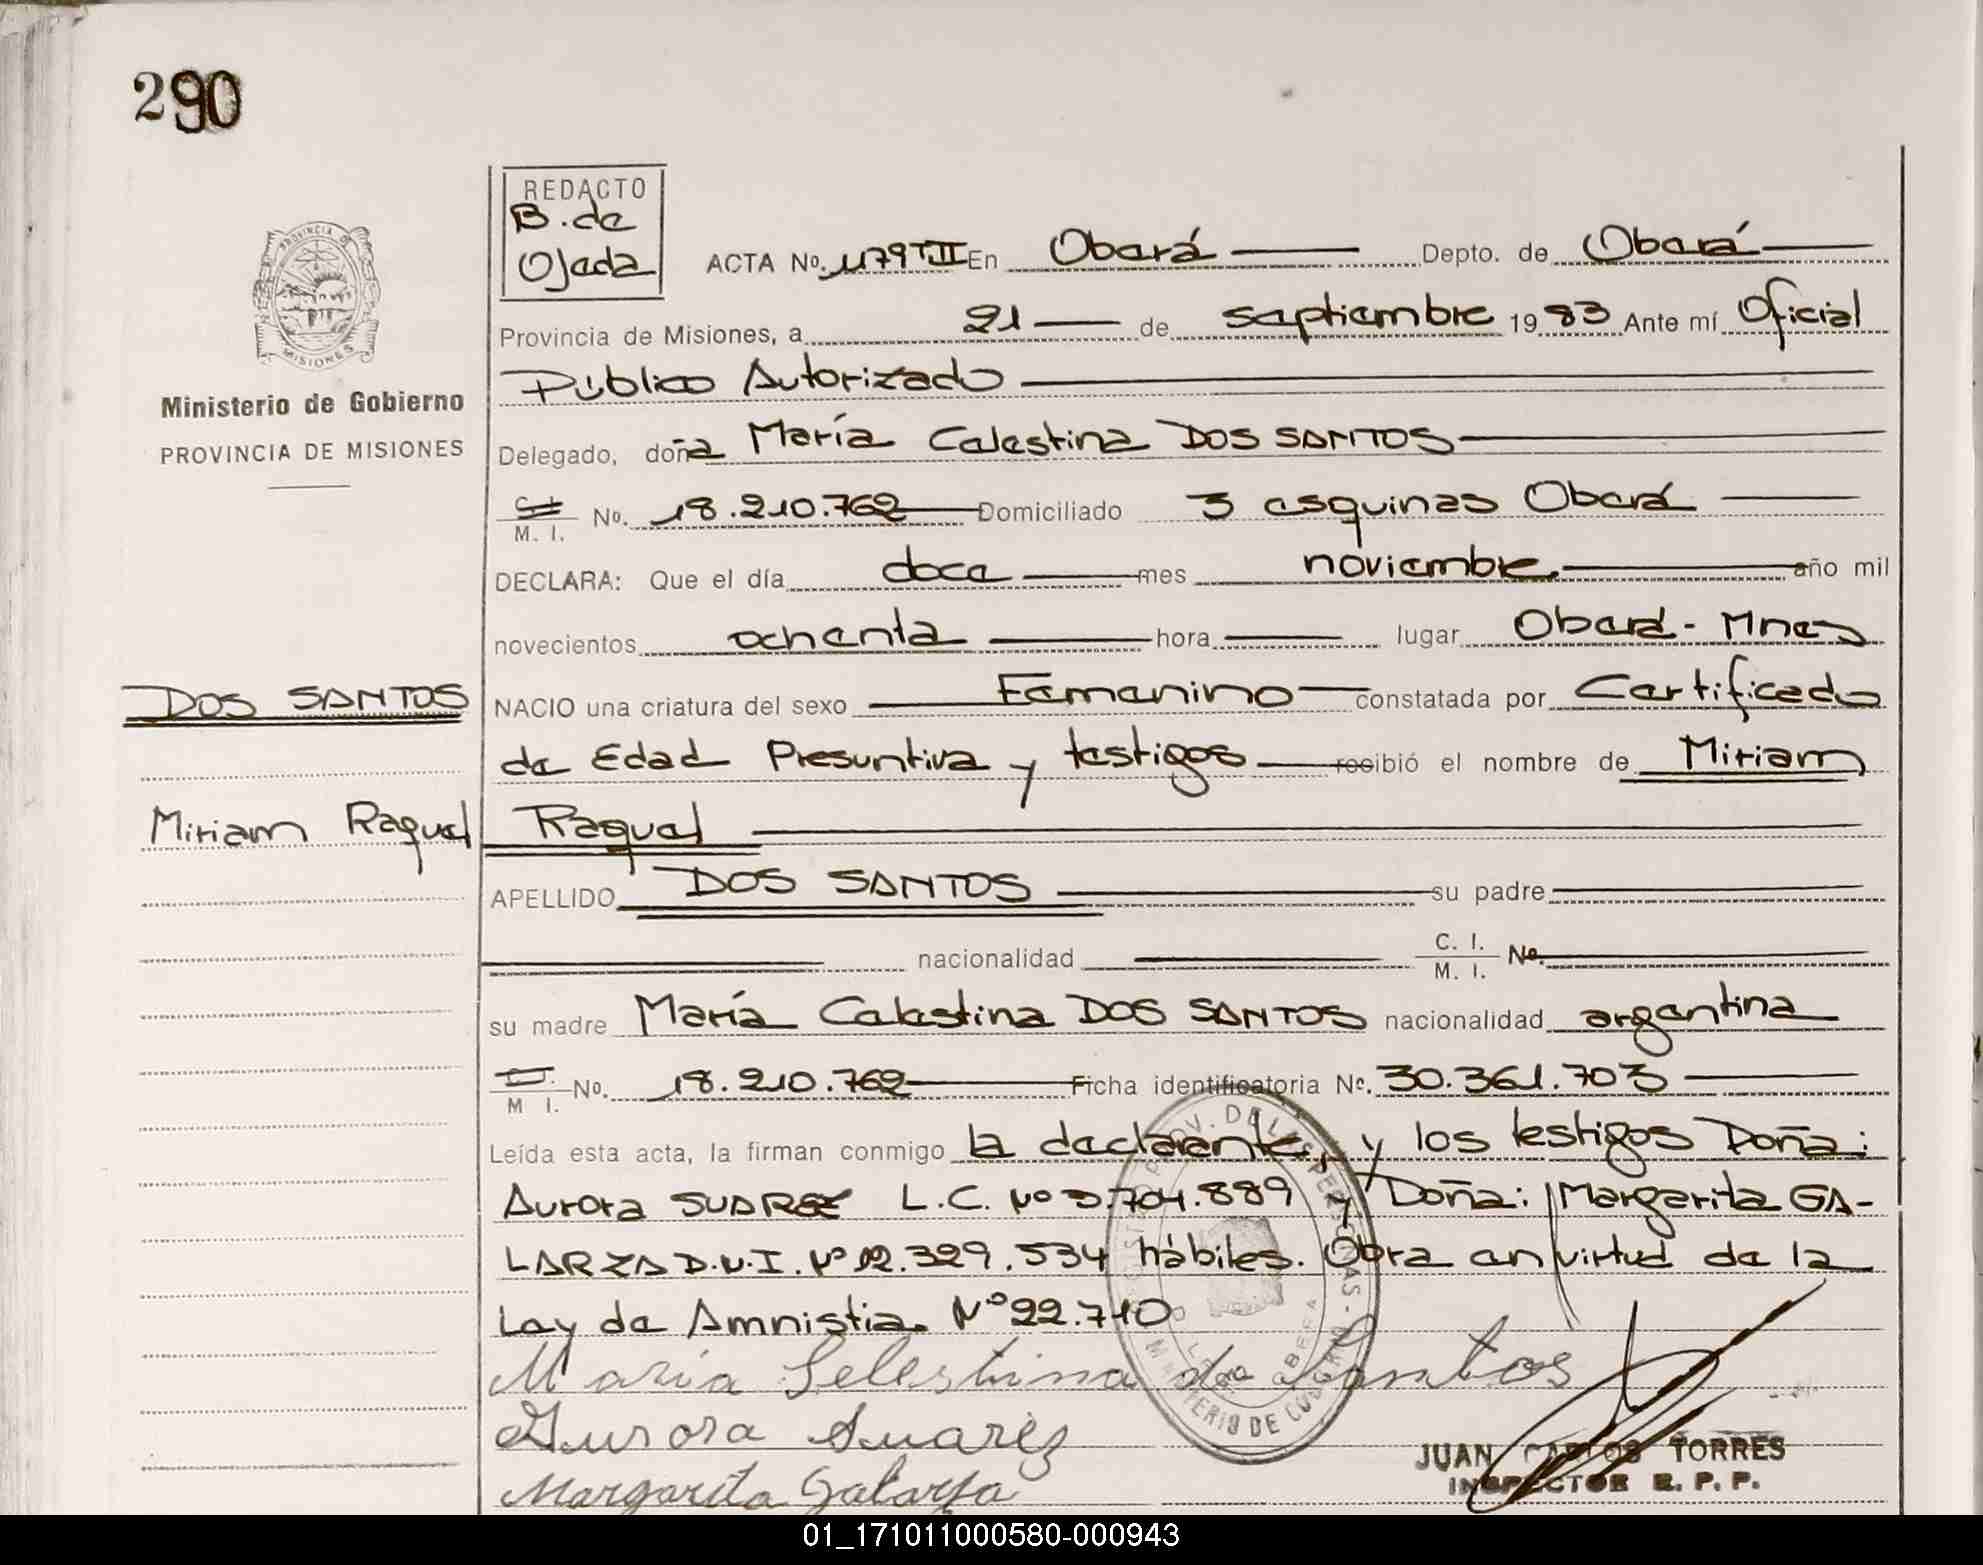 290
REDACTO
B. de
Ojeda
ACTA No. 1179 T II En Oberá Depto. de Oberá
Provincia de Misiones, a 21 de septiembre 1983 Ante mí Oficial
Público Autorizado
PROVINCIA DE
MISIONES
Ministerio de Gobierno
PROVINCIA DE MISIONES
Delegado, doña María Celestina DOS SANTOS
M. I. No. 18.210.762 Domiciliado 3 esquinas Oberá
DECLARA: Que el día doce mes noviembre año mil
novecientos ochenta hora lugar Oberá - Mnes
DOS SANTOS
NACIO una criatura del sexo Femenino constatada por Certificado
de Edad Presuntiva y testigos recibió el nombre de Miriam
Miriam Raquel
Raquel
APELLIDO DOS SANTOS su padre
nacionalidad C. I. M. I. No.
su madre María Celestina DOS SANTOS nacionalidad argentina
M I. No. 18.210.762 Ficha identificatoria No. 30.361.703
Leída esta acta, la firman conmigo la declarante, y los testigos Doña:
Aurora SUAREZ L.C. Nº 3.704.889 y Doña: Margarita GA-
LARZA D.N.I. Nº 12.329.534 hábiles. Obra en virtud de la
Ley de Amnistia Nº 22.710
Maria Selestina do Santos
Aurora Suarez
Margarita Galarza
PROV. DE LAS PERSONAS
MINISTERIO DE GOBIERNO
JUAN CARLOS TORRES
INSPECTOR R. P. P.
01_171011000580-000943